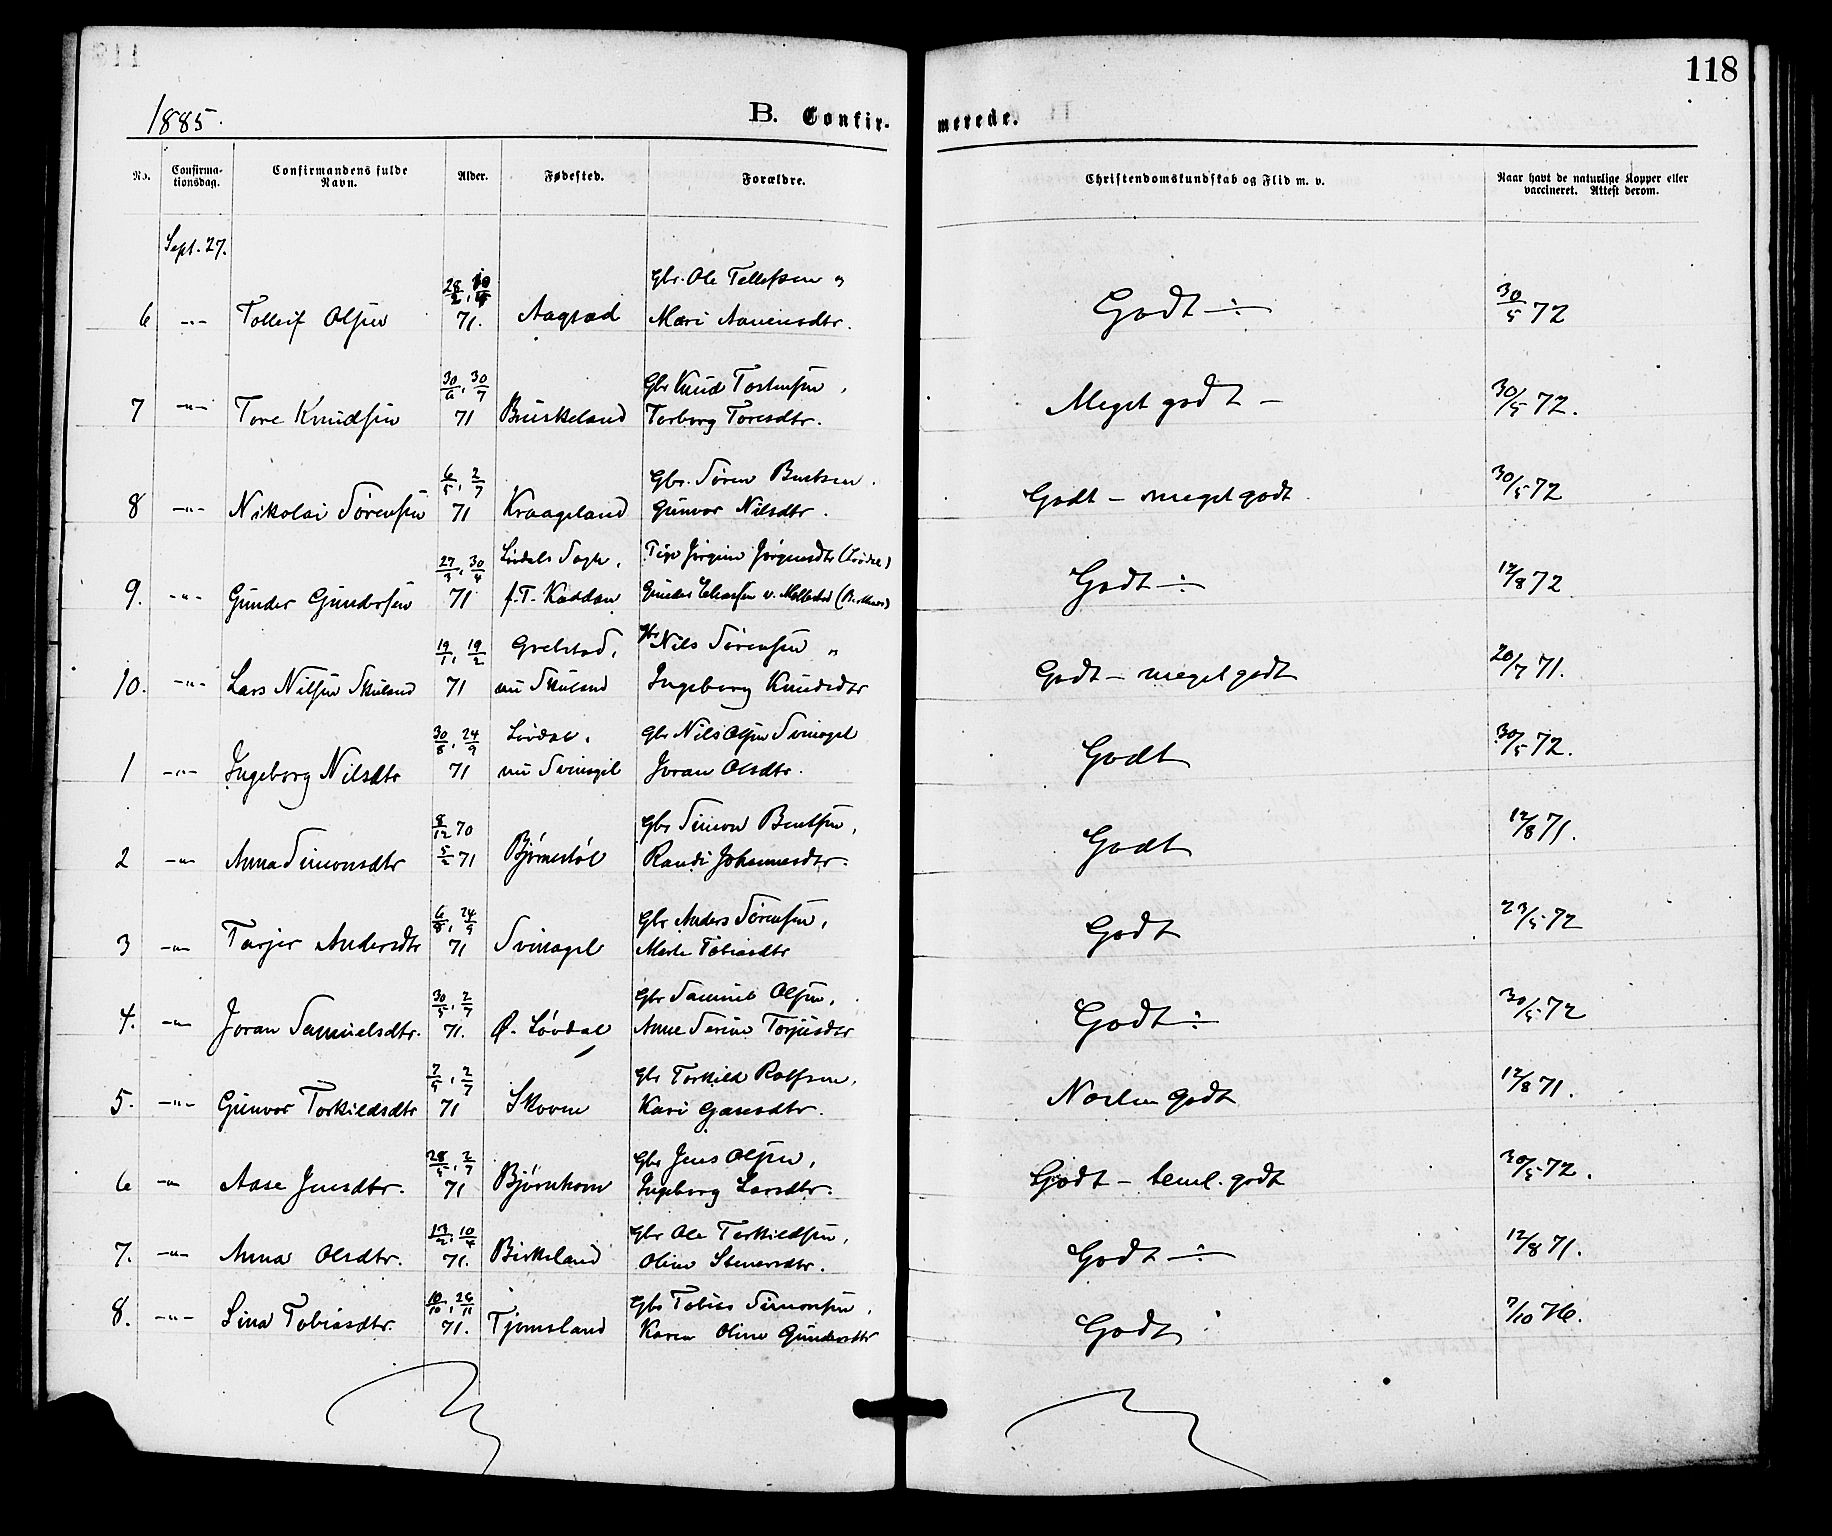 118
1885.
B. Confir-
merede.
No.
Confirma-
tionsdag.
Confirmandens fulde
Navn.
Alder.
Fødested.
Forældre.
Christendomskundskab og Flid m. v.
Naar havt de naturlige Kopper eller
vaccineret. Attest derom.
Sept. 27.
28/2, 10/4 Gbr. Ole Tellefsen "
6 -"- Tolleif Olsen 71. Aagstad Mari Aanensdtr. Godt ÷ 30/5 72
30/6, 30/7 Gbr Knud Tostensen,
7 -"- Tore Knudsen 71 Buskeland Torborg Toresdtr. Meget godt - 30/5 72.
6/5, 2/7 Gbr. Søren Bentsen.
8 -"- Nikolai Sørensen 71 Kraageland Gunvor Nilsdtr. Godt - meget godt. 30/5 72
27/3, 30/4 Lindals Sogn, Pige Jørgine Jørgensdtr (Lindal)
9. -"- Gunder Gundersen 71 f.T. Kaddan Gunder v. Godt ÷ 12/8 72
19/1, 19/2 Grelstad, Gbr Nils Sørensen "
10. -"- Lars Nilsen Skuland 71 nu Skuland Ingeborg Knudsdtr Godt - meget godt 20/7 71.
30/8, 24/9 Løvdal, Gbr Nils Olsen Svinagel
1 -"- Ingeborg Nilsdtr 71 nu Svinagel Joran Olsdtr. Godt 30/5 72.
8/12 70 Gbr Simon Bentsen,
2 -"- Anna Simonsdtr 5/2 71 Bjørnestøl Randi Johannesdtr. Godt 12/8 71.
6/8, 24/9 Gbr Anders Sørensen,
3 -"- Tarjer Andersdtr 71 Svinagel Marte Tobiasdtr Godt 23/5 72
30/5, 2/7 Gbr Samuel Olsen,
4. -"- Joran Samuelsdtr. 71. Ø. Løvdal Anne Serine Torjusdtr Godt ÷ 30/5 72
7/5, 2/7 Gbr Torkild Rolfsen,
5. -"- Gunvor Torkildsdtr 71 Skoven Kari Gasesdtr. Næsten godt 12/8 71.
28/5, 2/7 Gbr Jens Olsen,
6 -"- Aase Jensdtr. 71 Bjørnhom Ingeborg Larsdtr. Godt - teml. godt 30/5 72.
13/2, 10/4 Gbr Ole Torkildsen,
7. -"- Anna Olsdtr. 71. Birkeland Oline Stenersdtr. Godt ÷ 12/8 71.
10/10, 26/11 Gbr Tobias Simonsen,
8. -"- Lina Tobiasdtr. 71. Tjomsland Karen Oline Gundersdtr Godt 7/10 76.